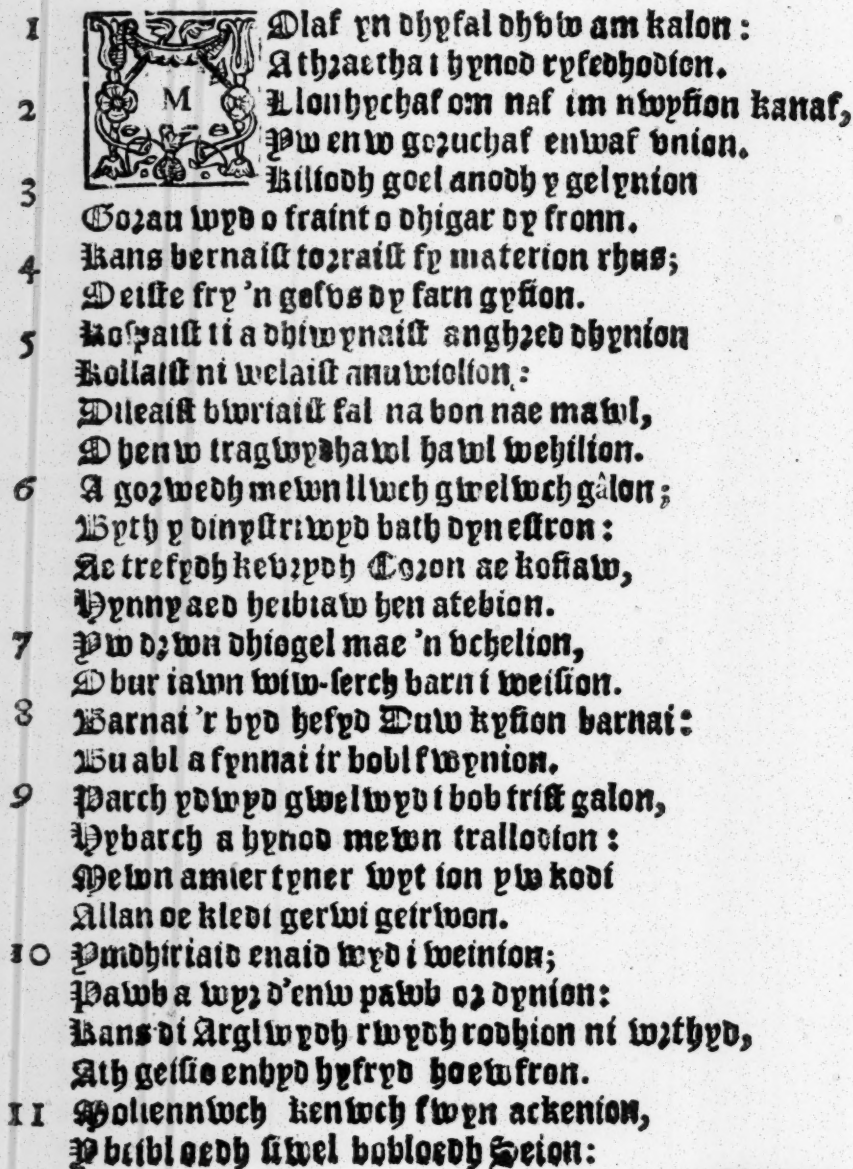 1 MOlaf yn dhyfal dhvw am kalon:
A thraetha i hynod ryfedhodion.
2 Llonhychaf om naf im nwyfion kanaf,
Yw enw goruchaf enwaf vnion.
3 Kiliodh goel anodh y gelynion
Gorau wyd o fraint o dhigar dy fronn.
4 Kans bernaist torraist fy materion rhus;
Deiste fry 'n gofvs dy farn gyfion.
5 Kosπaist ti a dhiwynaist anghred dhynion
Kollaist ni welaist anuwiolion:
Dileaist bwriaist fal na bon nae mawl,
O henw tragwydhawl hawl wehilion.
6 A gorwedh mewn llwch gwelwch gâlon;
Byth y dinystriwyd bath dyn estron:
Ae trefydh kevrydh Coron ae kofiaw,
Hynny aed heibiaw hen atebion.
7 Yw drwn dhiogel mae 'n vchelion,
O bur iawn wiw-serch barn i weision.
8 Barnai 'r byd hefyd Duw kyfion barnai:
Bu abl a fynnai ir bobl fwynion.
9 Parch ydwyd gwelwyd i bob trist galon,
Hybarch a hynod mewn trallodion:
Mewn amser tyner wyt ion yw kodi
Allan oe kledi gerwi geirwon.
10 Ymdhiriaid enaid wyd i weinion;
Pawb a wyr d'enw pawb or dynion:
Kans di Arglwydh rwydh rodhion ni wrthyd,
Ath geisio enhyd hyfryd hoewfron.
11 Moliennwch kenwch fwyn ackenion,
Y bubloedh siwel bobloedh Seion: